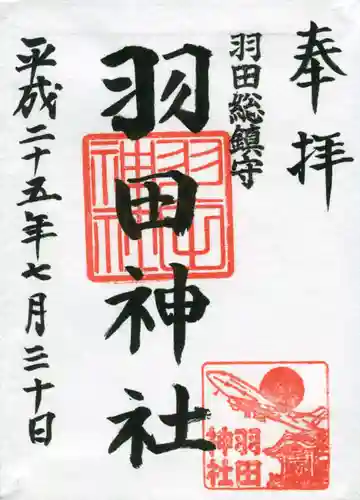 奉拝
羽田総鎮守
羽田神社
平成二十五年七月三十日
羽田神社
羽田
神社